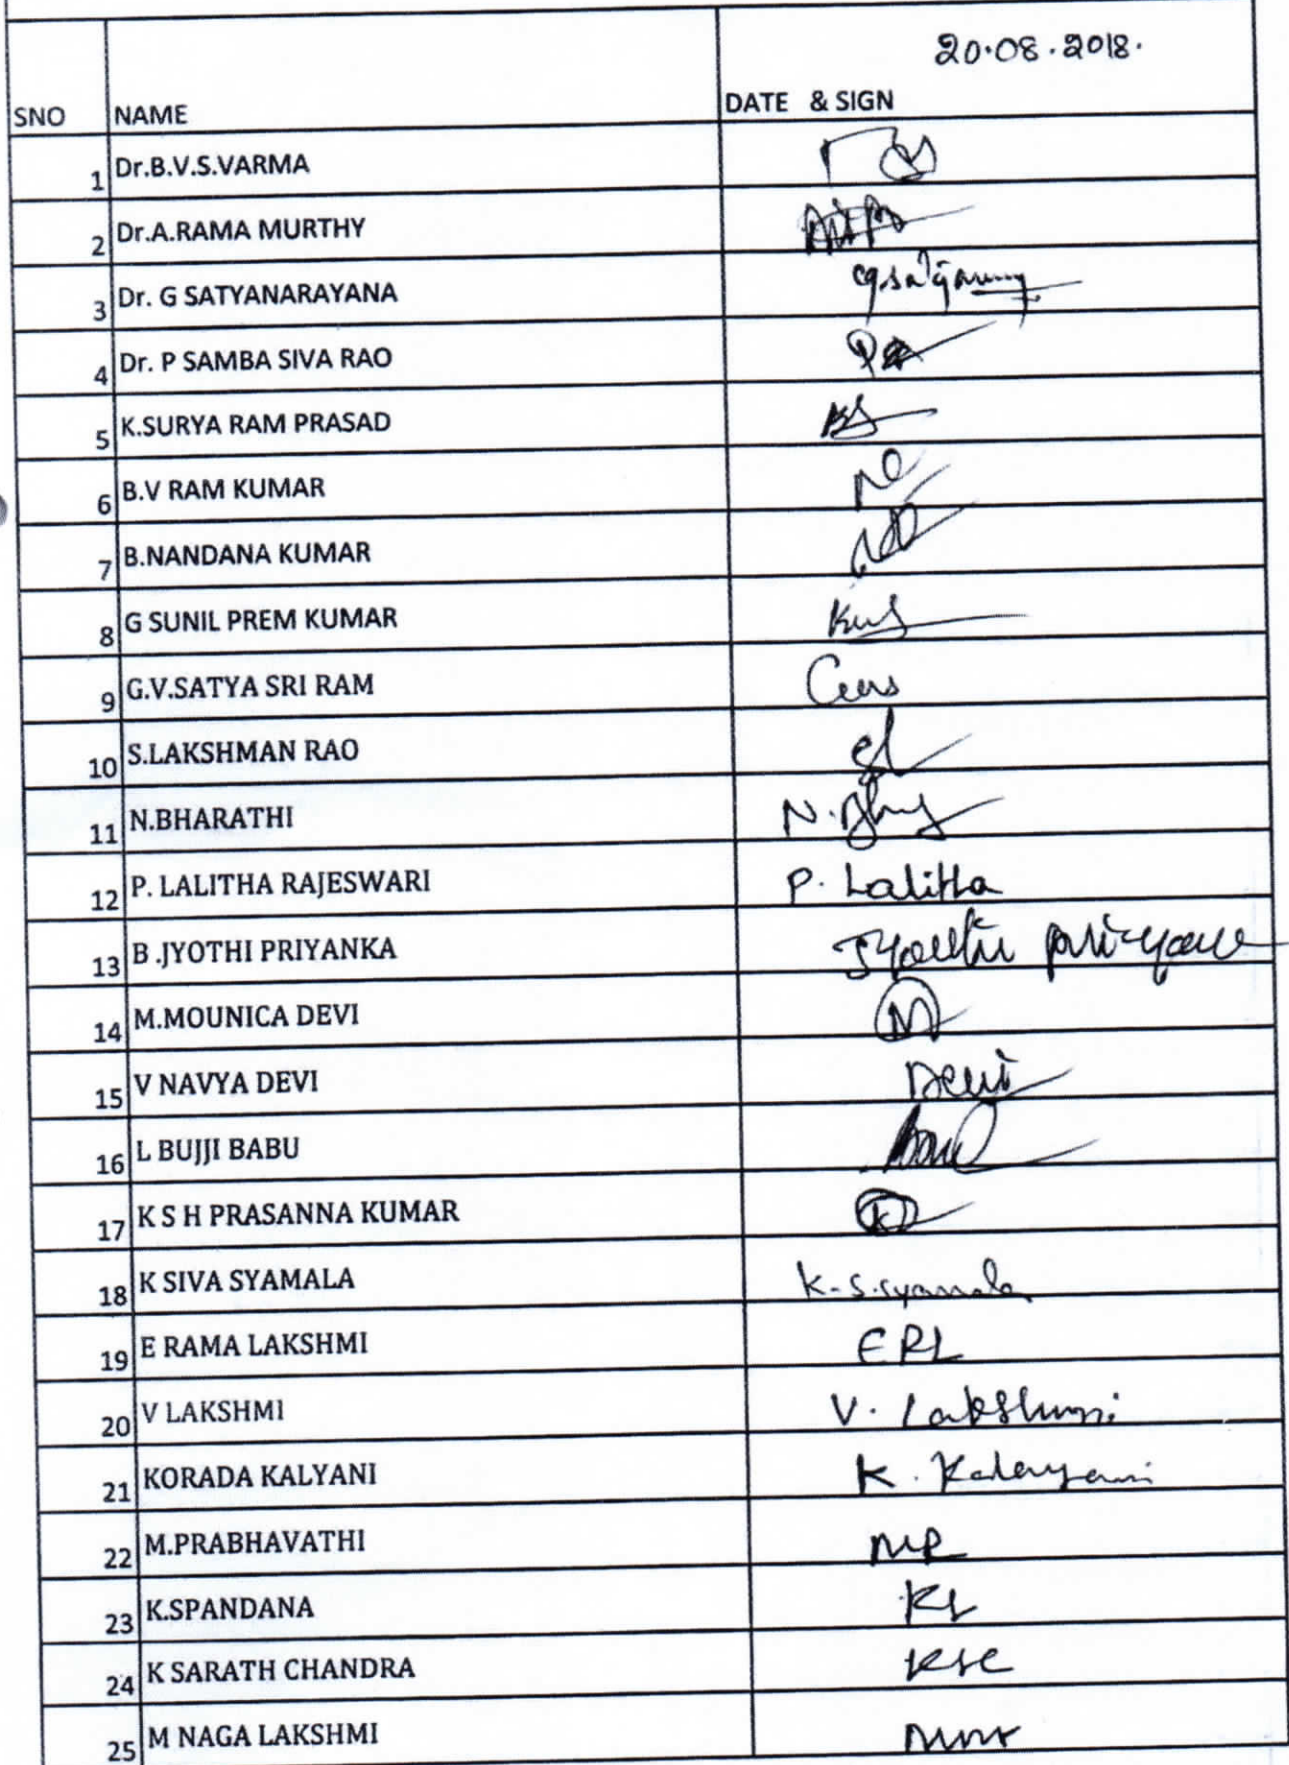 20.08.2018.
SNO NAME DATE & SIGN
1 Dr.B.V.S.VARMA
2 Dr.A.RAMA MURTHY
3 Dr. G SATYANARAYANA
4 Dr. P SAMBA SIVA RAO
5 K.SURYA RAM PRASAD
6 B.V RAM KUMAR
7 B.NANDANA KUMAR
8 G SUNIL PREM KUMAR
9 G.V.SATYA SRI RAM
10 S.LAKSHMAN RAO
11 N.BHARATHI N.
12 P. LALITHA RAJESWARI P. Lalitha
13 B.JYOTHI PRIYANKA
14 M.MOUNICA DEVI M
15 V NAVYA DEVI Devi
16 L BUJJI BABU
17 K S H PRASANNA KUMAR
18 K SIVA SYAMALA K.S.syamala
19 E RAMA LAKSHMI ERL
20 V LAKSHMI V. Lakshmi
21 KORADA KALYANI K. Kalayani
22 M.PRABHAVATHI MP
23 K.SPANDANA KS
24 K SARATH CHANDRA KSC
25 M NAGA LAKSHMI